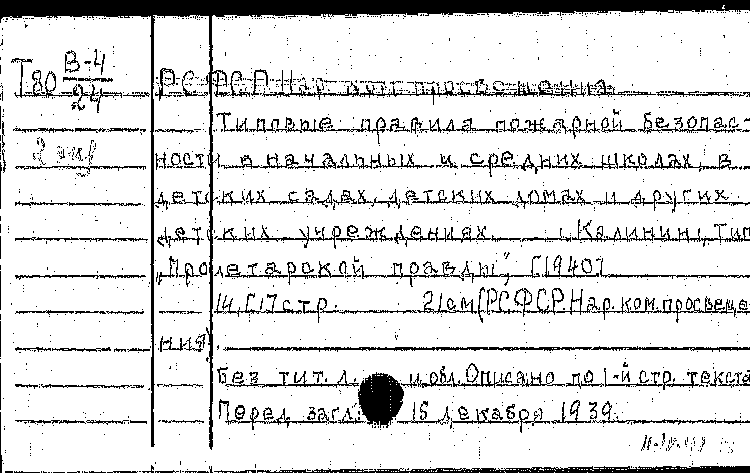 Т80 В-4
24
РСФСР. Нар. ком. просвещения.
2 экз
Типовые правила пожарной безопас-
ности в начальных и средних школах, в
детских садах, детских домах и других
детских учреждениях. [Калинин], Тип.
„Пролетарской правды", [1940]
14, [1] стр. 21 см (РСФСР. Нар. ком. просвеще-
ния).
Без тит. л. и обл. Описано по 1-й стр. текста
Перед загл.: 15 декабря 1939.